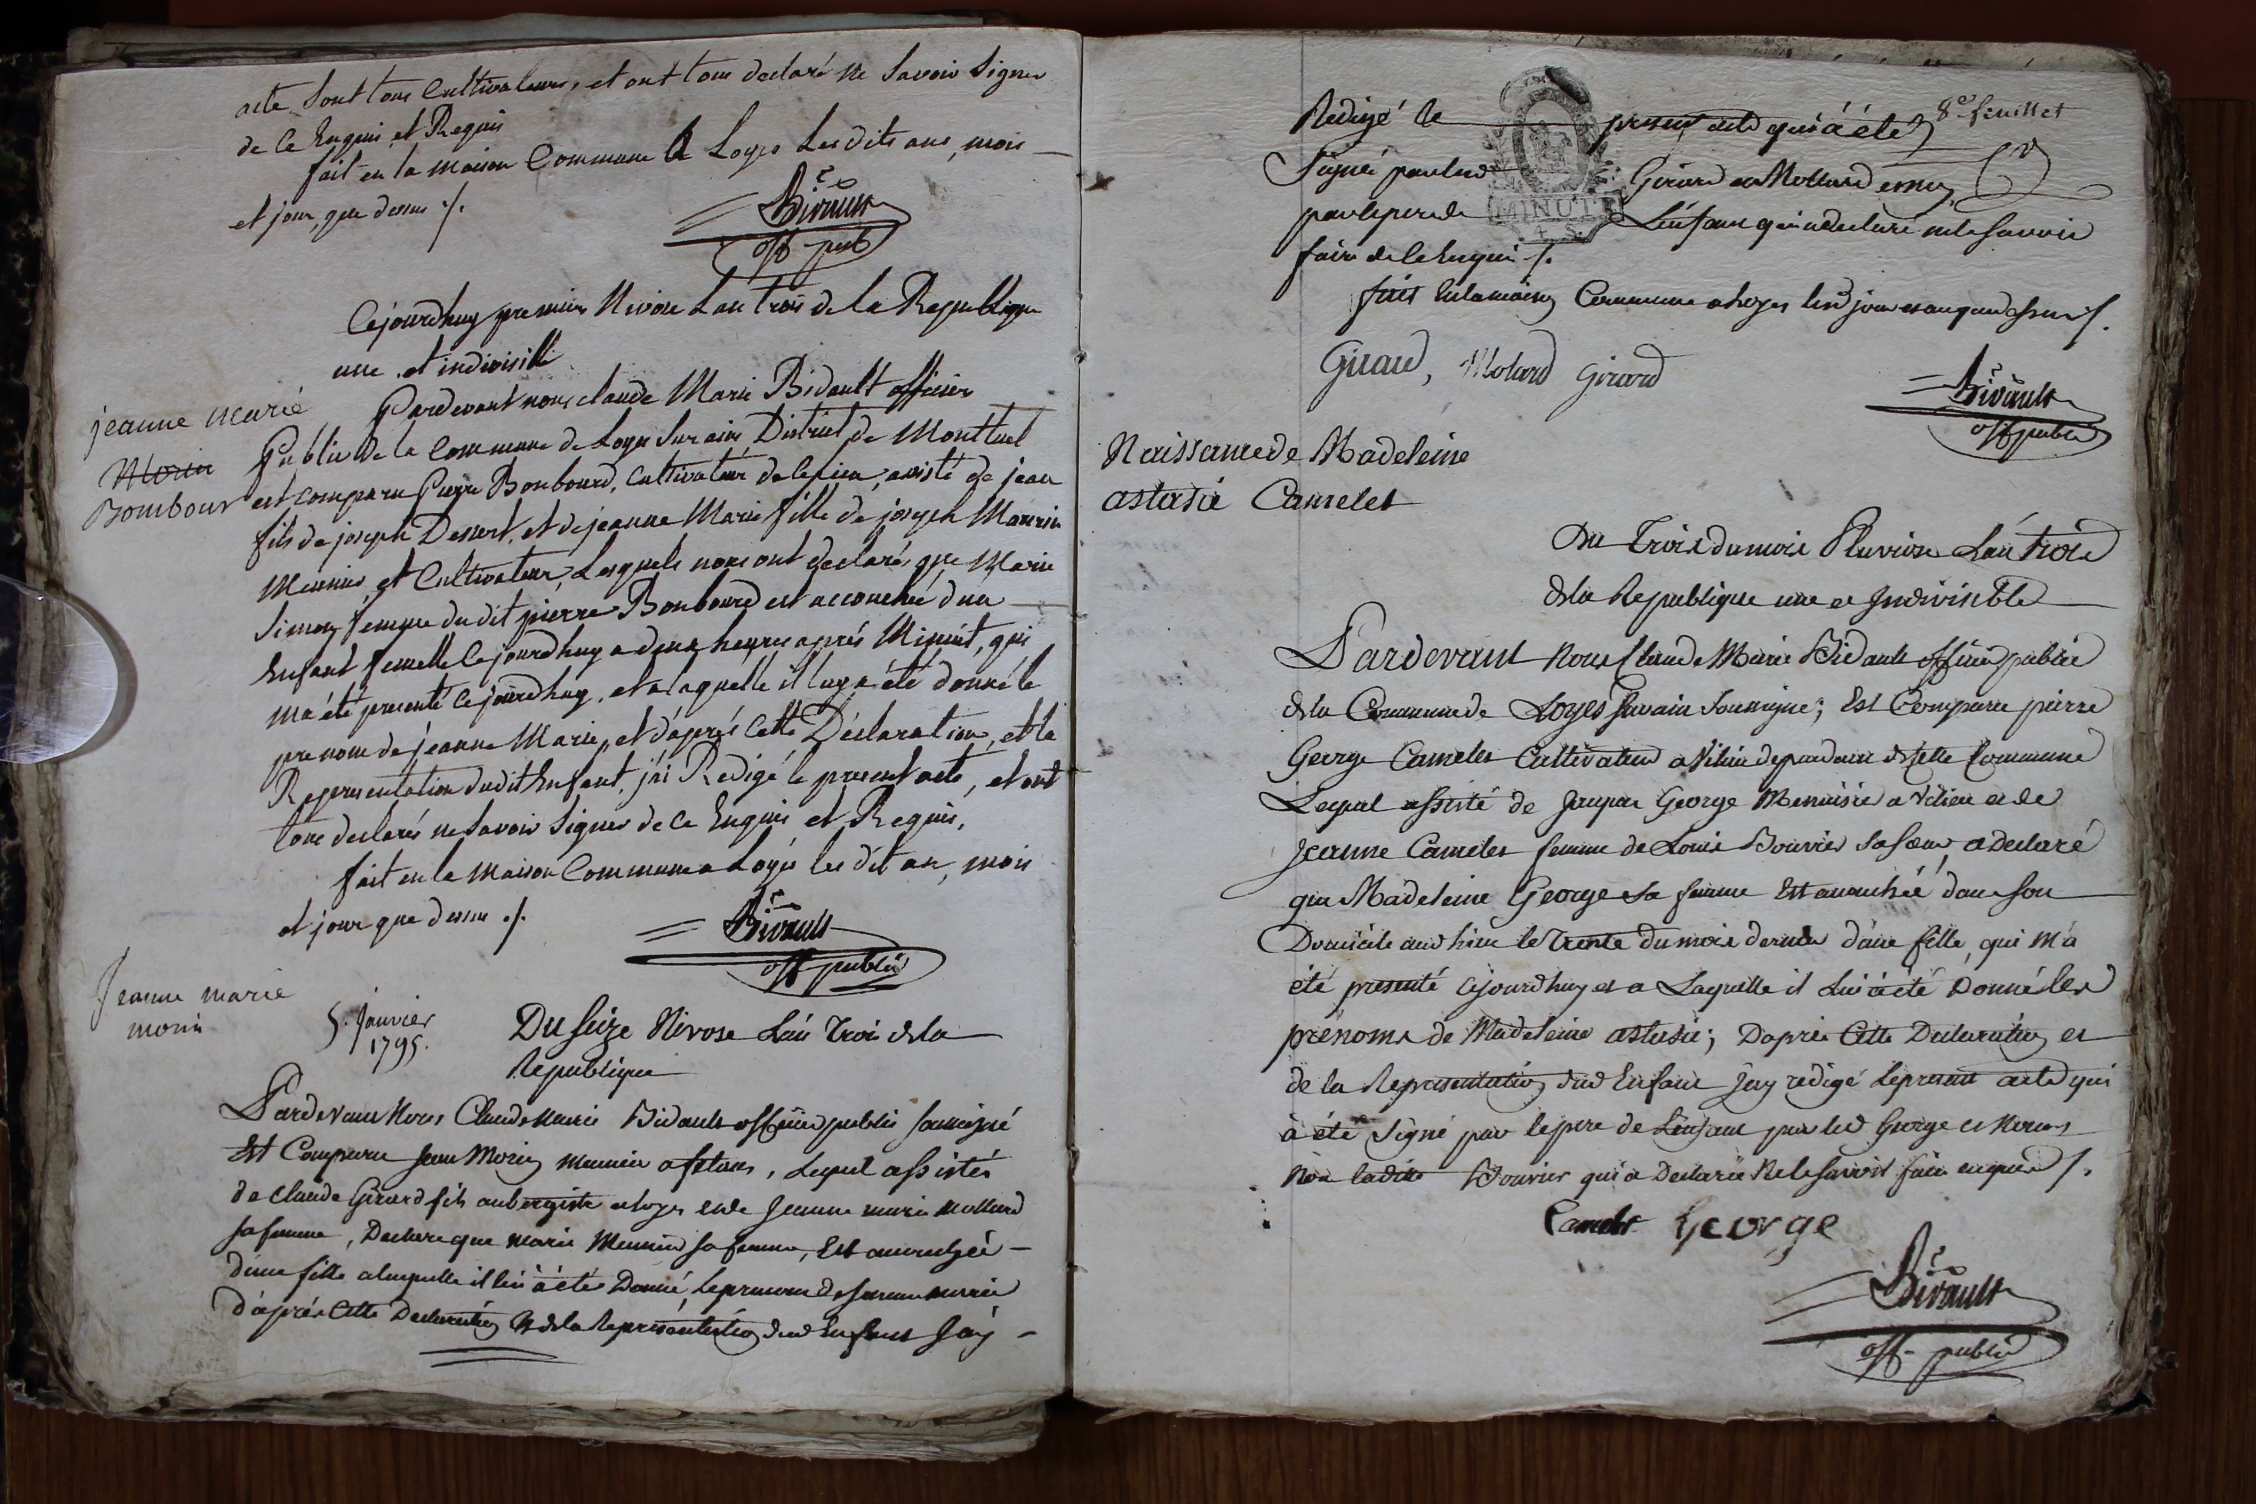 acte sont tous Cultivateurs, et ont tous declaré ne Savoir Signer
de Ce Enquis et Requis
fait en la maison Commune A Loyes Les dits ans, mois
et jour, que dessus ./.
Bidault
off. pub
Cejourdhuy premier Nivose L'an trois de la Republique
une et indivisible
jeanne marie
Morin
Bombour
Pardevant nous claude Marie Bidault officier
Public de la Commune de Loyes Sur ain District de Montluel
est comparu Pierre Bonbourd, Cultivateur de Ce lieu, assisté de jean
fils de joseph Dessert, et de jeanne Marie fille de joseph
Meunier, et Cultivateur, Lesquels nous ont declarés que Marie
Simon femme dudit pierre Bonbourd est accouchée d'un
Enfant femelle Cejourdhuy a deux heures aprés Minuit, qui
m'a été presenté Cejourdhuy, et a laquelle il luy a été donné le
prenom de jeanne Marie, et d'après Cette Déclaration, et la
Representation dudit Enfant, j'ai Redigé le present acte, et ont
tous declarés ne Savoir Signer de Ce Enquis et Requis,
fait en la Maison Commune a Loyes les dit an, mois
et jour que dessus ./.
Bidault
off. public
Jeanne marie
morin
5. Janvier
1795.
Du Seize Nivose L'an Trois de la
Republique
Pardevant Nous Claude Marie Bidault officier public soussigné
Est Comparu Jean Morin Meunier, Lequel assistés
de Claude Girard fils aubergiste a loyes et de Jeanne marie Mollard
sa femme, Declare que marie Meunier sa femme, Est accouchée
d'une fille a laquelle il lui à été Donné, Le prenom de Jeanne marie
d'après Cette Declaration et de la Représentation dud Enfant Jay
8e feuillet
Redigé le present acte qui à été
Signé par led Girard et Mollard et non
par le pere de L'enfant qui a declaré ne le savoir
faire de Ce Enquis ./.
MINUTE
4. S.
fait En la maison Commune a Loyes les jour et an que dessus ./.
Giraud, Molard Girard
Bidault
off public
Naissance de Madeleine
astasie Camelet
Du Trois du mois Pluviose L'an trois
de la Republique une et Indivisible
Pardevant Nous Claude Marie Bidault officier public
de la Commune de Loyes Surain Soussigné; Est Comparu pierre
George Camelet Cultivateur a Vilieu dependance de Cette Commune
Lequel assisté de George Menuisier a Vilieu et de
Jeanne Camelet femme de Louis Bouvier sa sœur, a Declaré
que Madeleine George sa femme Est accouchée dans son
Domicile aud lieu le Trente du mois dernier d'une fille, qui m'a
été presenté Cejourdhuy et a Laquelle il Lui à été Donné les
prénoms de Madeleine astasie; D'apris Cette Declaration et
de la Representation dud Enfant Jay redigé le present acte qui
à été Signé par le pere de L'enfant par led George et Nous
Non ladite Bouvier qui a Declaré Ne le savoir faire enquis ./.
Camelet George
Bidault
off. public